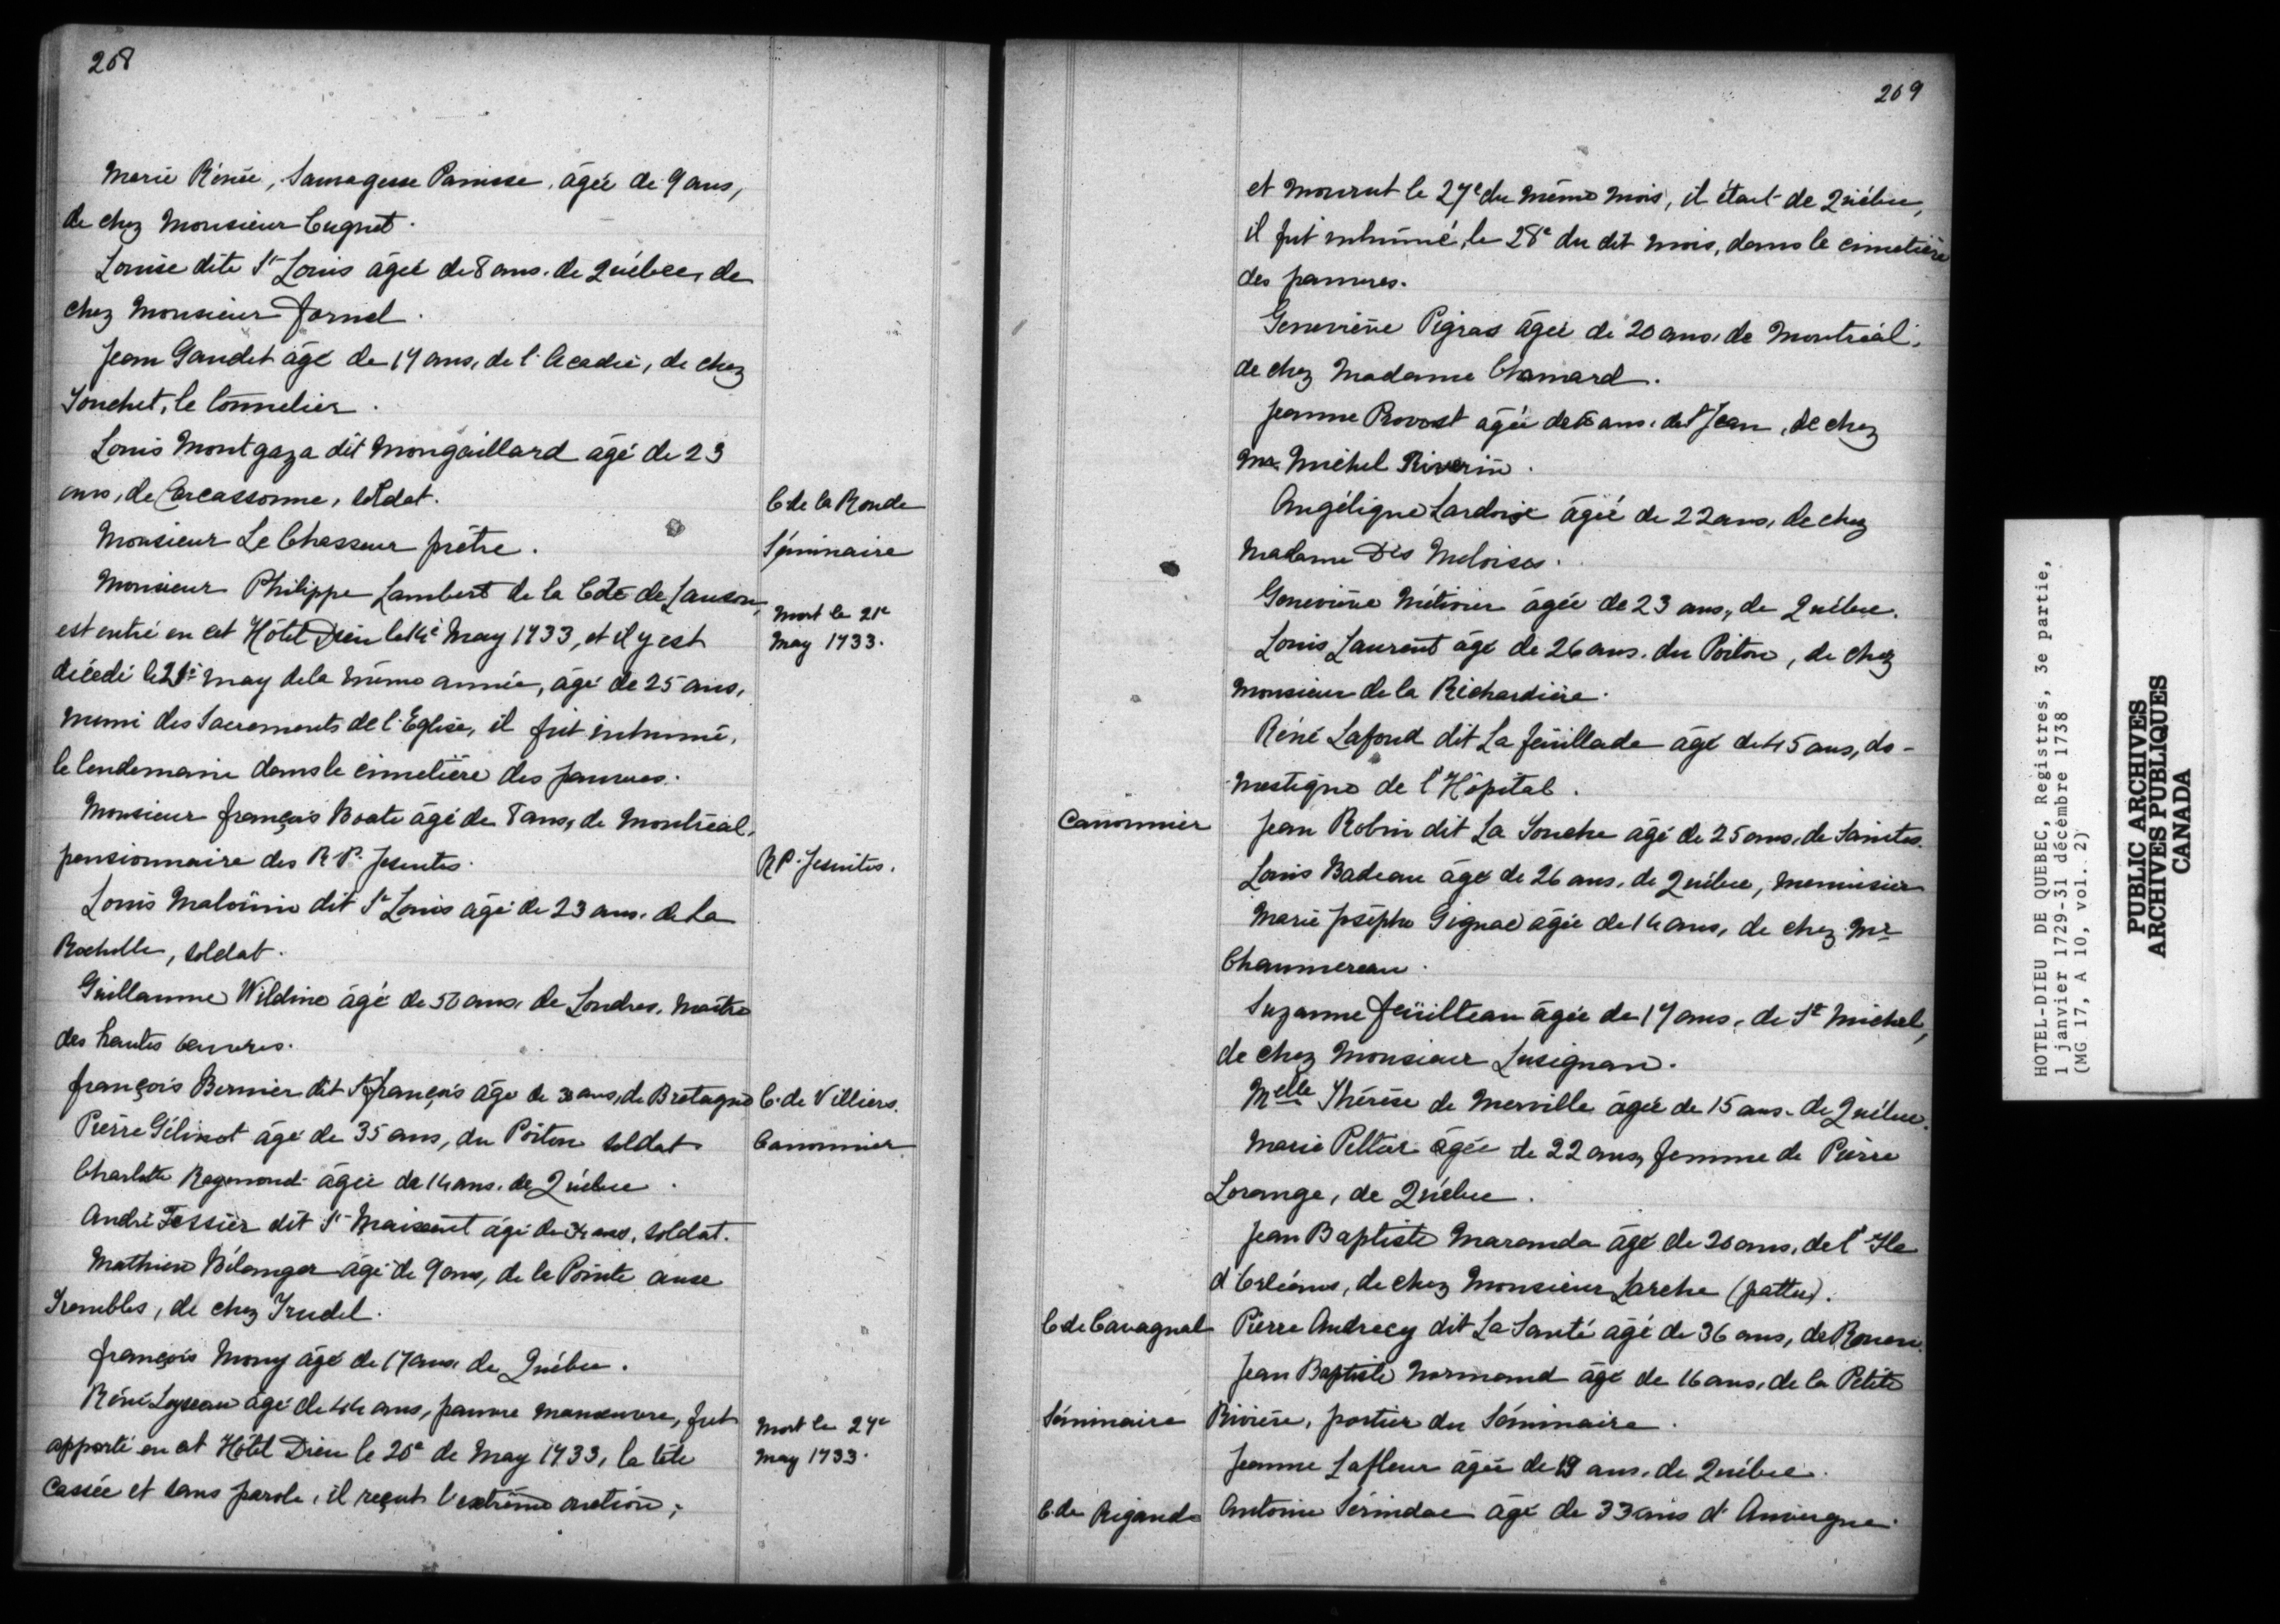 208
Marie Rénée, Sauvagesse Panisse, âgée de 9 ans,
de chez Monsieur Cugnet.
Louise dite St Louis âgée de 8 ans. de Québec, de
chez Monsieur fornel.
Jean Gaudet âgé de 17 ans, de l'Acadie, de chez
Souchet, le tonnelier.
Louis Montgaza dit Mongaillard âgé de 23
ans, de Carcassonne, soldat.
C. de la Ronde
Monsieur Le Chasseur prêtre.
Séminaire
Monsieur Philippe Lambert de la Côte de Lauson,
est entré en cet Hôtel Dieu le 14e May 1733, et il y est
décédé le 21e May de la même année, âgé de 25 ans,
muni des Sacrements de l'Eglise, il fut inhumé,
le lendemain dans le cimetière des pauvres.
Mort le 21e
May 1733.
Monsieur françois Boate âgé de 8 ans, de Montréal,
pensionnaire des R.P. Jesuites.
RP. Jesuites.
Louis Malouin dit St Louis âgé de 23 ans. de La
Rochelle, soldat.
Guillaume Wildine âgé de 50 ans, de Londres, Maître
des hautes œuvres.
françois Bernier dit St françois âgé de 30 ans, de Bretagne
C. de Villiers.
Pierre Gélinot âgé de 35 ans, du Poitou soldat
Canonnier
Charlotte Raymond âgée de 14 ans. de Québec.
André Tessier dit St Maixent âgé de 34 ans, soldat.
Mathieu Bélanger âgé de 9 ans, de la Pointe aux
Trembles, de chez Trudel.
françois Mony âgé de 17 ans. de Québec.
Réné Loyseau âgé de 44 ans, pauvre manœuvre, fut
apporté en cet Hôtel Dieu le 20e de May 1733, la tête
cassée et sans parole, il reçut l'extrême onction,
Mort le 27e
May 1733.
209
et mourut le 27e du même mois, il était de Québec,
il fut inhumé, le 28e du dit mois, dans le cimetière
des pauvres.
Geneviève Pigras âgée de 20 ans, de Montréal,
de chez Madame Chamard.
Jeanne Provost âgée de ans. de St Jean, de chez
Mr. Michel Riverin.
Angélique Lardoise âgée de 22 ans, de chez
Madame Des Meloises.
Geneviève Métivier âgée de 23 ans, de Québec.
Louis Laurent âgé de 26 ans. du Poitou, de chez
Monsieur de la Richardière.
Réné Lafond dit La feüillade âgé de 45 ans, do-
-mestique de l'Hôpital.
Canonnier
Jean Robin dit La Souche âgé de 25 ans, de Saintes.
Louis Badeau âgé de 26 ans, de Québec, menuisier
Marie Josèphe Gignac âgée de 14 ans, de chez Mr
Chaumereau.
Suzanne feüilteau âgée de 17 ans, de St Michel,
de chez Monsieur Lusignan.
Melle Thérèse de Merville âgée de 15 ans. de Québec.
Marie Peltier âgée de 22 ans, femme de Pierre
Lorange, de Québec.
Jean Baptiste Maranda âgé de 20 ans, de l'Ile
d'Orléans, de chez Monsieur Larche (pattu).
C. de Cavagnal
Pierre Andrecy dit La Santé âgé de 36 ans, de Rouen.
Jean Baptiste Normand âgé de 16 ans, de la Petite
Séminaire
Rivière, portier du Séminaire.
Jeanne Lafleur âgée de 19 ans. de Québec.
C. de Rigaud
Antoine Sérindac âgé de 33 ans d'Auvergne.
HOTEL-DIEU DE QUEBEC, Registres, 3e partie,
1 janvier 1729-31 décembre 1738
(MG 17, A 10, vol. 2)
PUBLIC ARCHIVES
ARCHIVES PUBLIQUES
CANADA